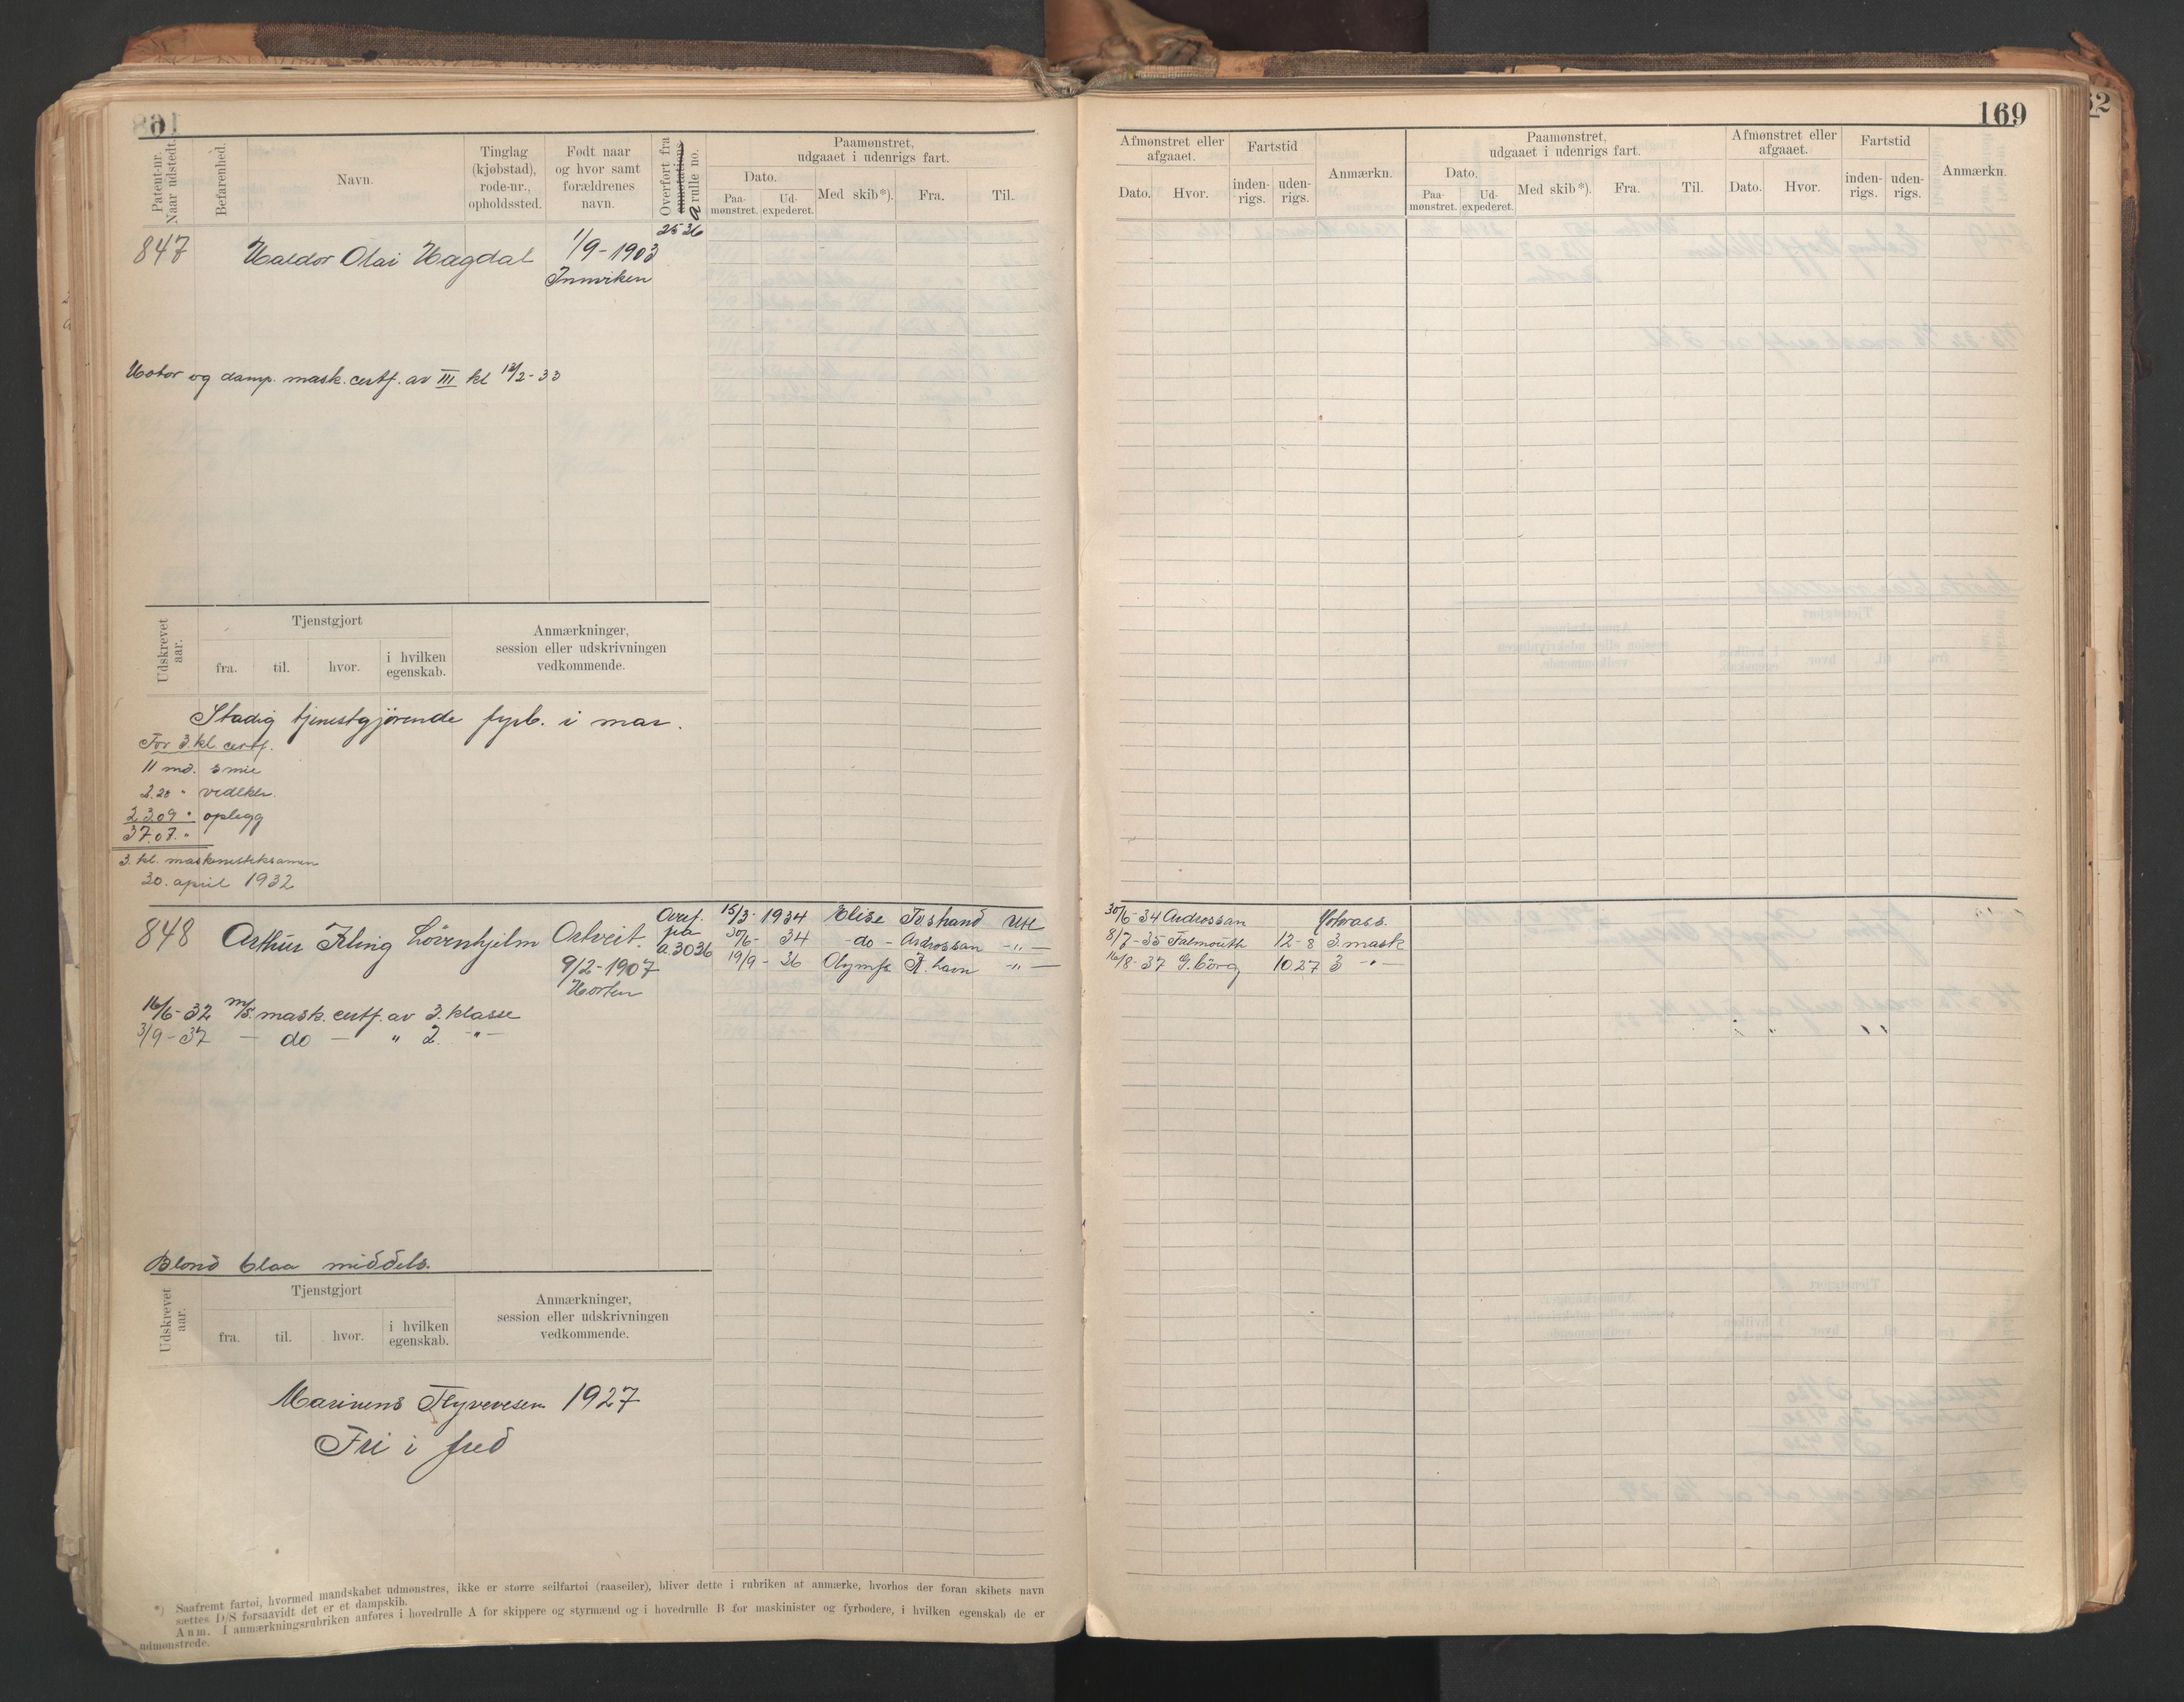 168
Patent-nr. Naar udstedt.
Befarenhed.
Navn.
Tinglag (kjøbstad), rode-nr., opholdssted.
Født naar og hvor samt forældrenes navn.
Overført fra annotations a rulle no.
Paamønstret, udgaaet i udenrigs fart.
Dato.
Paa-mønstret.
Ud-expederet.
Med skib*).
Fra.
Til.
847 Haldor Olai Hagdal 1/9-1903 2536
Innviken
Motor og damp. mask. certf. av III kl 13/2-33
Udskrevet aar.
Tjenstgjort
fra.
til.
hvor.
i hvilken egenskab.
Anmærkninger, session eller udskrivningen vedkommende.
Stadig tjenestgjørende fyrb. i mar.
For 3. kl certf.
11 md. smie
2.20 " vedlkh.
23 09 " oplegg
37.07. "
3. kl. maskinisteksamen
30. april 1932
848 Arthur Lövenhjelm Ostveit.
Overf. fra a 3036
9/2-1907
Horten
15/3-1934 Elise Tvshand Utl
30/6- 34 -do- Ardrossan -"-
19/9- 36 Olymp K. havn -"-
16/6-32 m/s. mask. certf. av 3. klasse
3/9-37 - do - " 2. -"-
Blond blaa middels.
Udskrevet aar.
Tjenstgjort
fra.
til.
hvor.
i hvilken egenskab.
Anmærkninger, session eller udskrivningen vedkommende.
Marinens Flyvevesen 1927
Fri i fred
*) Saafremt fartøi, hvormed mandskabet udmønstres, ikke er større seilfartøi (raaseiler), bliver dette i rubriken at anmærke, hvorhos der foran skibets navn
sættes D/S forsaavidt det er et dampskib.
Anm. I anmærkningsrubriken anføres i hovedrulle A for skippere og styrmænd og i hovedrulle B for maskinister og fyrbødere, i hvilken egenskab de er
udmønstrede.
169
Afmønstret eller afgaaet.
Dato.
Hvor.
Fartstid
inden-rigs.
uden-rigs.
Anmærkn.
Paamønstret, udgaaet i udenrigs fart.
Dato.
Paa-mønstret.
Ud-expederet.
Med skib*).
Fra.
Til.
Afmønstret eller afgaaet.
Dato.
Hvor.
Fartstid
inden-rigs.
uden-rigs.
Anmærkn.
30/6-34 Ardrossan Motorass.
8/7-35 Falmouth 12-8 3 mask
16/8-37 G.borg 10 27 3 -"-
62